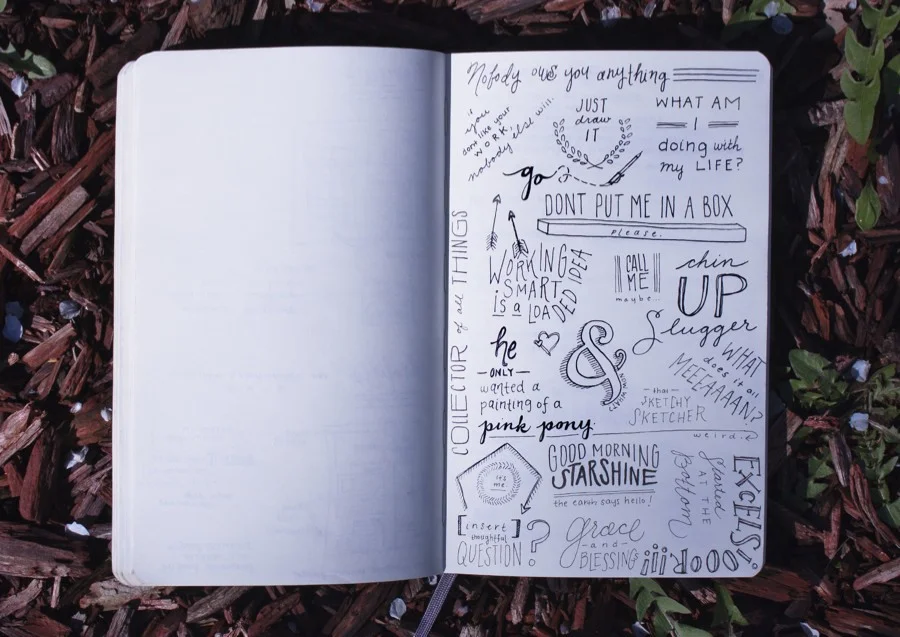 Nobody owes you anything
"you
dont like your
WORK,
nobody else will.
JUST
draw
IT
go
WHAT AM
I
doing with
my LIFE?
DONT PUT ME IN A BOX
please.
COLLECTOR of all THINGS
WORKING
SMART
is a LOADED IDEA
CALL
ME
maybe...
chin
UP
Slugger
he
-ONLY-
wanted a
painting of a
pink pony.
&
WHAT
does it all
MEEEAAAAN?
-that-
SKETCHY
SKETCHER
weird.
it's
me
GOOD MORNING
STARSHINE
the earth says hello!
Started
AT THE
Bottom
EXCELSiOOORiiii
[insert]
thoughtful
QUESTION?
Grace
-and-
BLESSINGS